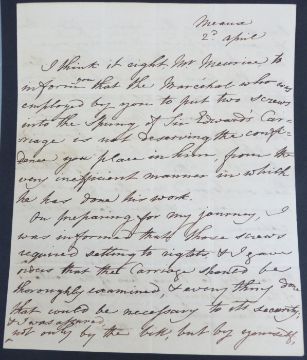 Meaux
2d April
I think it right Mr Meurice to
inform you that the Maréchal who was
employed by you to put two screws
into the Spring of Sir Edward's Car-
riage is not deserving the confi-
dence you place in him, from the
very inefficient manner in which
he has done his work.
On preparing for my journey, I
was informed that those screws
required setting to rights, & I gave
orders that the Carriage should be
thoroughly examined, & every thing done
that could be necessary to its security,
& I was assured,
not only by the but by yourself,